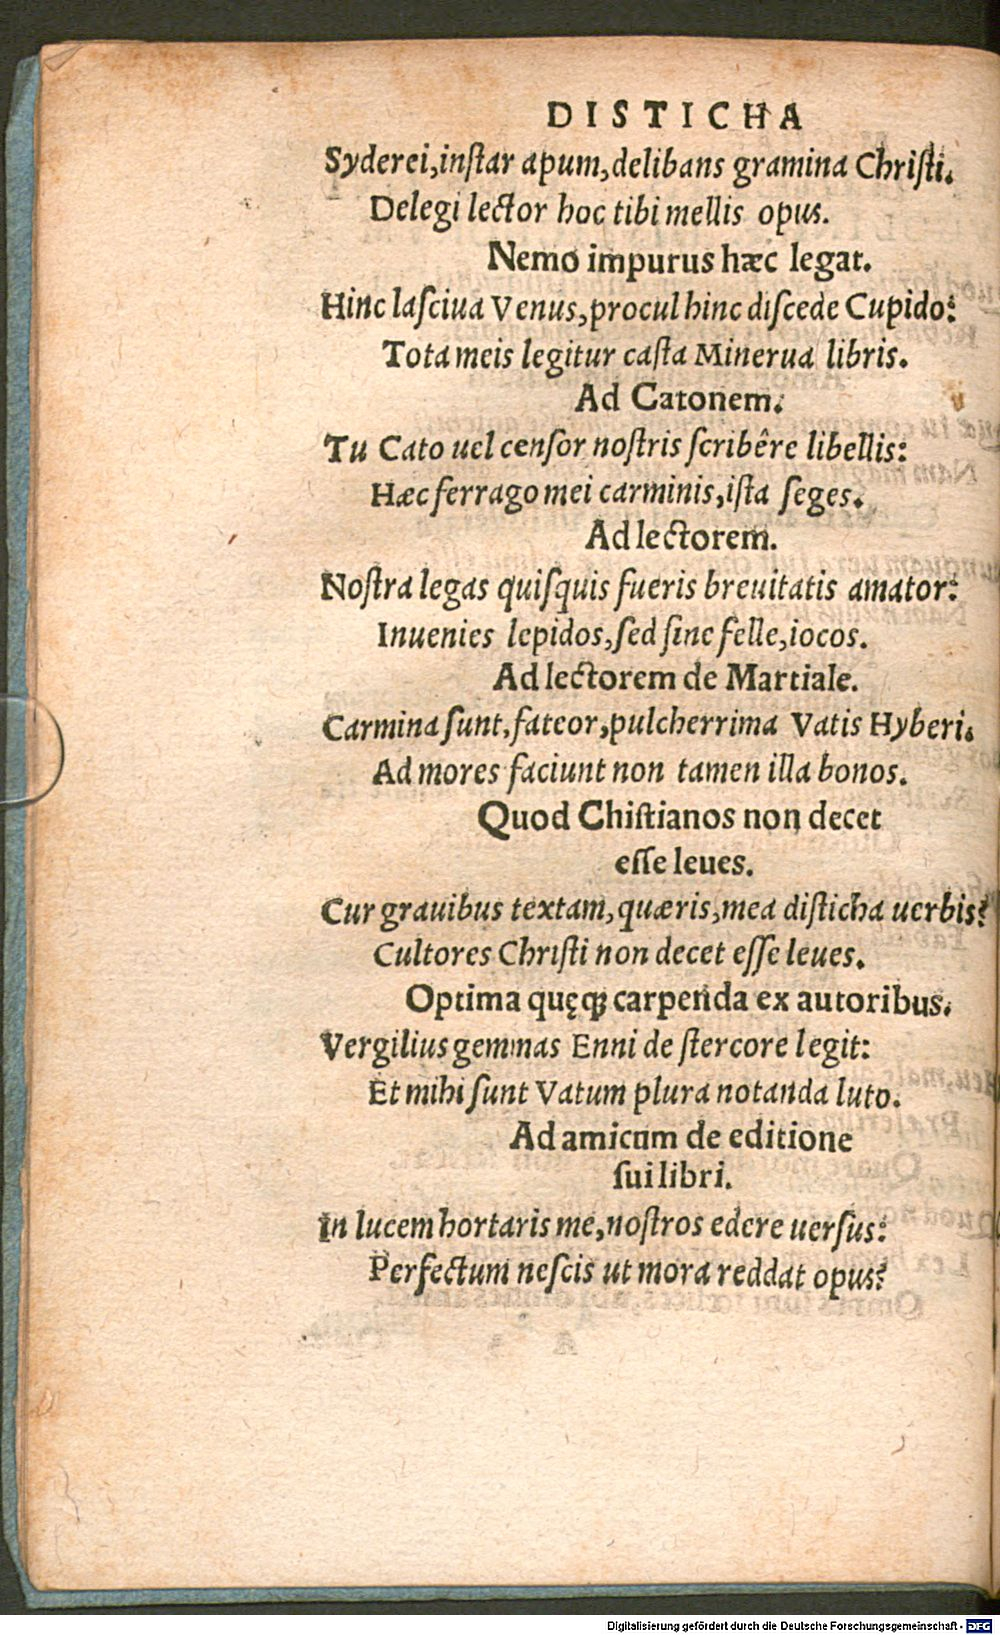 DISTICHA
Syderei, inſtar apum, delibans gramina Chriſti.
Delegi lector hoc tibi mellis opus.
Nemo impurus hæc legat.
Hinc laſciua Venus, procul hinc diſcede Cupido:
Tota meis legitur caſta Minerua libris.
Ad Catonem.
Tu Cato uel cenſor noſtris ſcribêre libellis:
Hæc ferrago mei carminis, iſta ſeges.
Ad lectorem.
Noſtra legas quiſquis fueris breuitatis amator:
Inuenies lepidos, ſed ſine felle, iocos.
Ad lectorem de Martiale.
Carmina ſunt, fateor, pulcherrima Vatis Hyberi.
Ad mores faciunt non tamen illa bonos.
Quod Chiſtianos non decet
eſſe leues.
Cur grauibus textam, quæris, mea diſticha uerbis?
Cultores Chriſti non decet eſſe leues.
Optima quęꝗ carpenda ex autoribus.
Vergilius gemmas Enni de ſtercore legit:
Et mihi ſunt Vatum plura notanda luto.
Ad amicum de editione
ſui libri.
In lucem hortaris me, noſtros edere uerſus:
Perfectum neſcis ut mora reddat opus?
Digitalisierung gefördert durch die Deutsche Forschungsgemeinschaft - DFG